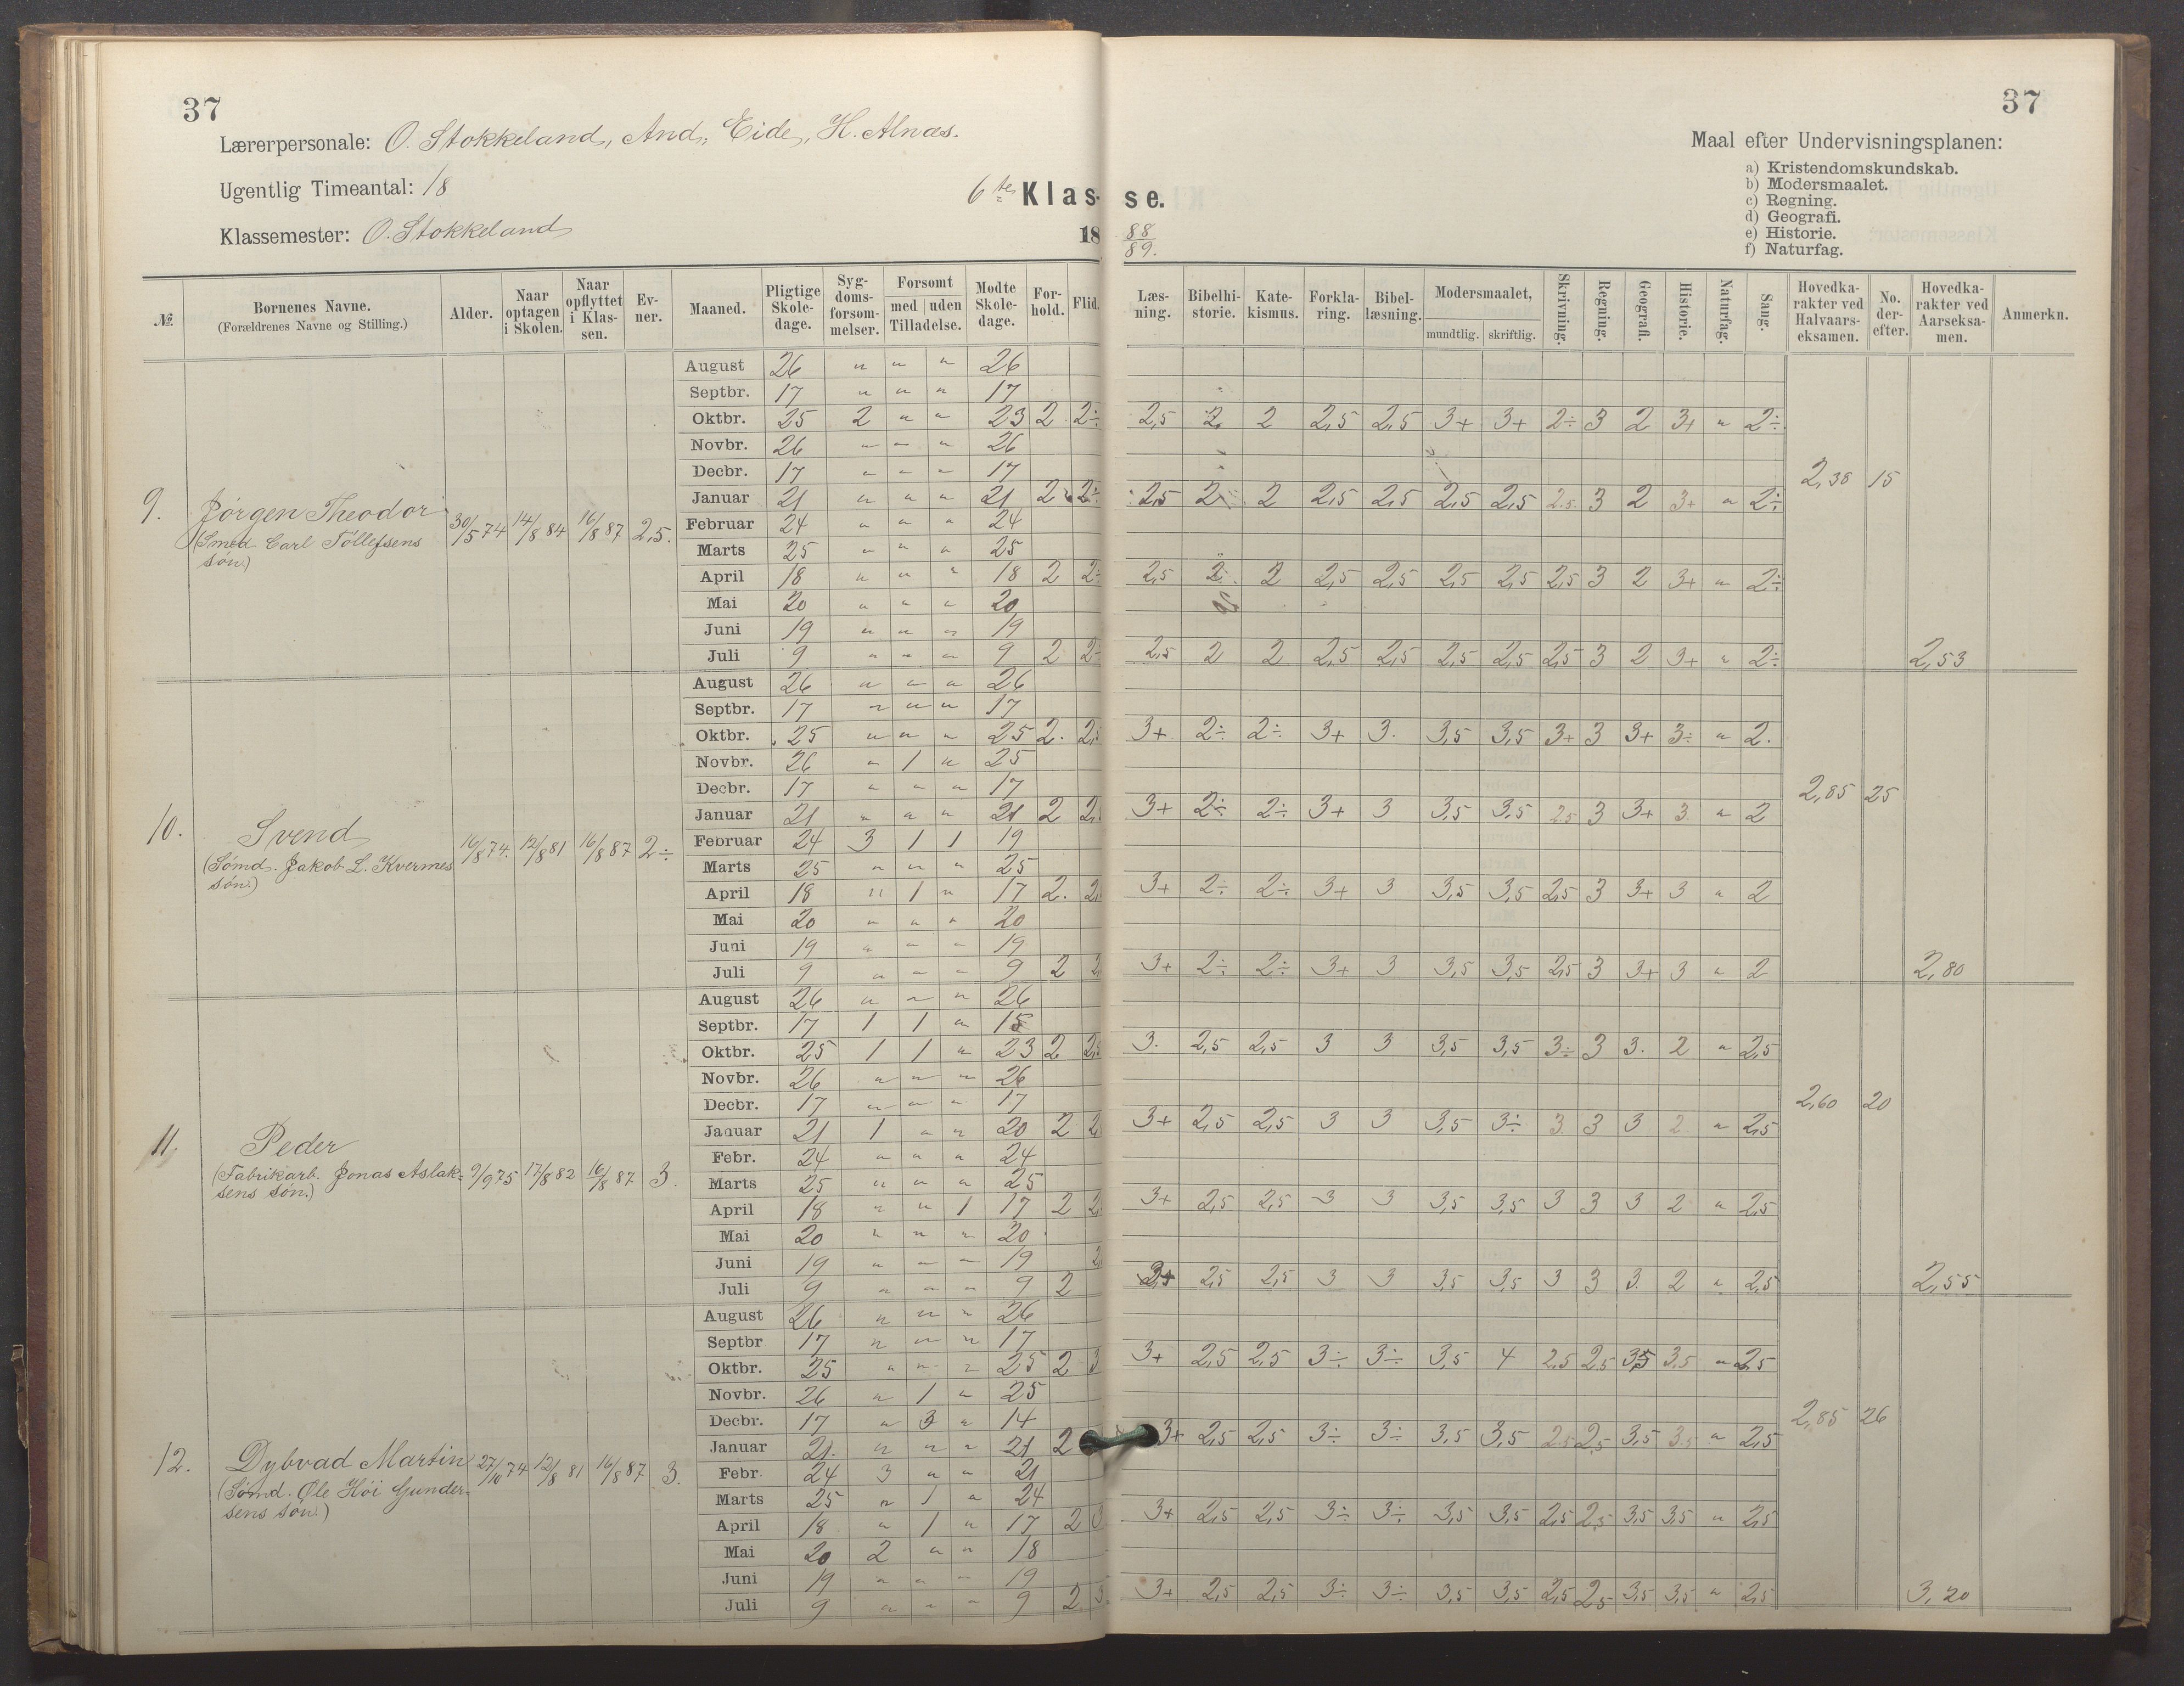 37
37
Lærerpersonale: O. Stokkeland, And. Eide, H. Alnæs.
Ugentlig Timeantal: 18
Klassemester: O. Stokkeland
6te Klas- se.
18 88/89.
Maal efter Undervisningsplanen:
a) Kristendomskundskab.
b) Modersmaalet.
c) Regning.
d) Geografi.
e) Historie.
f) Naturfag.
№ | Børnenes Navne. (Forældrenes Navne og Stilling.) | Alder. | Naar optagen i Skolen. | Naar opflyttet i Klas- sen. | Ev- ner. | Maaned. | Pligtige Skole- dage. | Syg- doms- forsøm- melser. | Forsømt med uden Tilladelse. | Mødte Skole- dage. | For- hold. | Flid. | Læs- ning. | Bibelhi- storie. | Kate- kismus. | Forkla- ring. | Bibel- læsning. | Modersmaalet, mundtlig. skriftlig. | Skrivning. | Regning. | Geografi. | Historie. | Naturfag. | Sang. | Hovedka- rakter ved Halvaars- eksamen. | No. der- efter. | Hovedka- rakter ved Aarseksa- men. | Anmerkn.
9. Jørgen Theodor (Smed Carl Tollefsens søn.) 30/5 74 14/8 84 16/8 87 2,5.
August 26 " " " 26
Septbr. 17 " " " 17
Oktbr. 25 2 " " 23 2 2÷ 2,5 2 2 2,5 2,5 3+ 3+ 2÷ 3 2 3+ " 2÷
Novbr. 26 " " " 26
Decbr. 17 " " " 17 2,38 15
Januar 21 " " " 21 2 2÷ 2,5 2 2 2,5 2,5 2,5 2,5 2,5 3 2 3+ " 2÷
Februar 24 " " " 24
Marts 25 " " " 25
April 18 " " " 18 2 2÷ 2,5 2 2 2,5 2,5 2,5 2,5 2,5 3 2 3+ " 2÷
Mai 20 " " " 20
Juni 19 " " " 19
Juli 9 " " " 9 2 2÷ 2,5 2 2 2,5 2,5 2,5 2,5 2,5 3 2 3+ " 2÷ 2,53
10. Svend (Sømd. Jakob L. Kvermes søn.) 16/8 74. 12/8 81 16/8 87 2÷
August 26 " " " 26
Septbr. 17 " " " 17
Oktbr. 25 " " " 25 2. 2,5 3+ 2÷ 2÷ 3+ 3. 3,5 3,5 3+ 3 3+ 3÷ " 2.
Novbr. 26 " 1 " 25
Decbr. 17 " " " 17 2,85 25
Januar 21 " " " 21 2 2, 3+ 2÷ 2÷ 3+ 3 3,5 3,5 2,5 3 3+ 3 " 2
Februar 24 3 1 1 19
Marts 25 " " " 25
April 18 " 1 " 17 2. 2, 3+ 2÷ 2÷ 3+ 3 3,5 3,5 2,5 3 3+ 3 " 2
Mai 20 " " " 20
Juni 19 " " " 19
Juli 9 " " " 9 2 2 3+ 2÷ 2÷ 3+ 3 3,5 3,5 2,5 3 3+ 3 " 2 2,80
11. Peder (Fabrikarb. Jonas Aslak- sens søn.) 9/9 75 17/8 82 16/8 87 3.
August 26 " " " 26
Septbr. 17 1 1 " 15
Oktbr. 25 1 1 " 23 2 2,5 3. 2,5 2,5 3 3 3,5 3,5 3÷ 3 3. 2 " 2,5
Novbr. 26 " " " 26
Decbr. 17 " " " 17 2,60 20
Januar 21 1 " " 20 2 2 3+ 2,5 2,5 3 3 3,5 3÷ 3 3 3 2 " 2,5
Febr. 24 " " " 24
Marts 25 " " " 25
April 18 " " 1 17 2 2, 3+ 2,5 2,5 3 3 3,5 3,5 3 3 3 2 " 2,5
Mai 20 " " " 20
Juni 19 " " " 19 2
Juli 9 " " " 9 2 2,5 2,5 3 3 3,5 3,5 3 3 3. 2 " 2,5 2,55
12. Dybvad Martin (Sømd. Ole Höi Gunder- sens søn.) 27/10 74 12/8 81 16/8 87 3.
August 26 " " " 26
Septbr 17 " " " 17
Oktbr. 25 " " " 25 2 3 3+ 2,5 2,5 3÷ 3÷ 3,5 4 2,5 2,5 3,5 3,5 " 2,5
Novbr. 26 " 1 " 25
Decbr. 17 " 3 " 14 2,85 26
Januar 21. " " " 21 2 3+ 2,5 2,5 3÷ 3÷ 3,5 3,5 2,5 2,5 3,5 3,5 " 2,5
Febr. 24 3 " " 21
Marts 25 " 1 " 24
April 18 " 1 " 17 2 3 3+ 2,5 2,5 3÷ 3÷ 3,5 3,5 2,5 2,5 3,5 3,5 " 2,5
Mai 20 2 " " 18
Juni 19 " " " 19
Juli 9 " " " 9 2 3 3+ 2,5 2,5 3÷ 3÷ 3,5 3,5 2,5 2,5 3,5 3,5 " 2,5 3,20